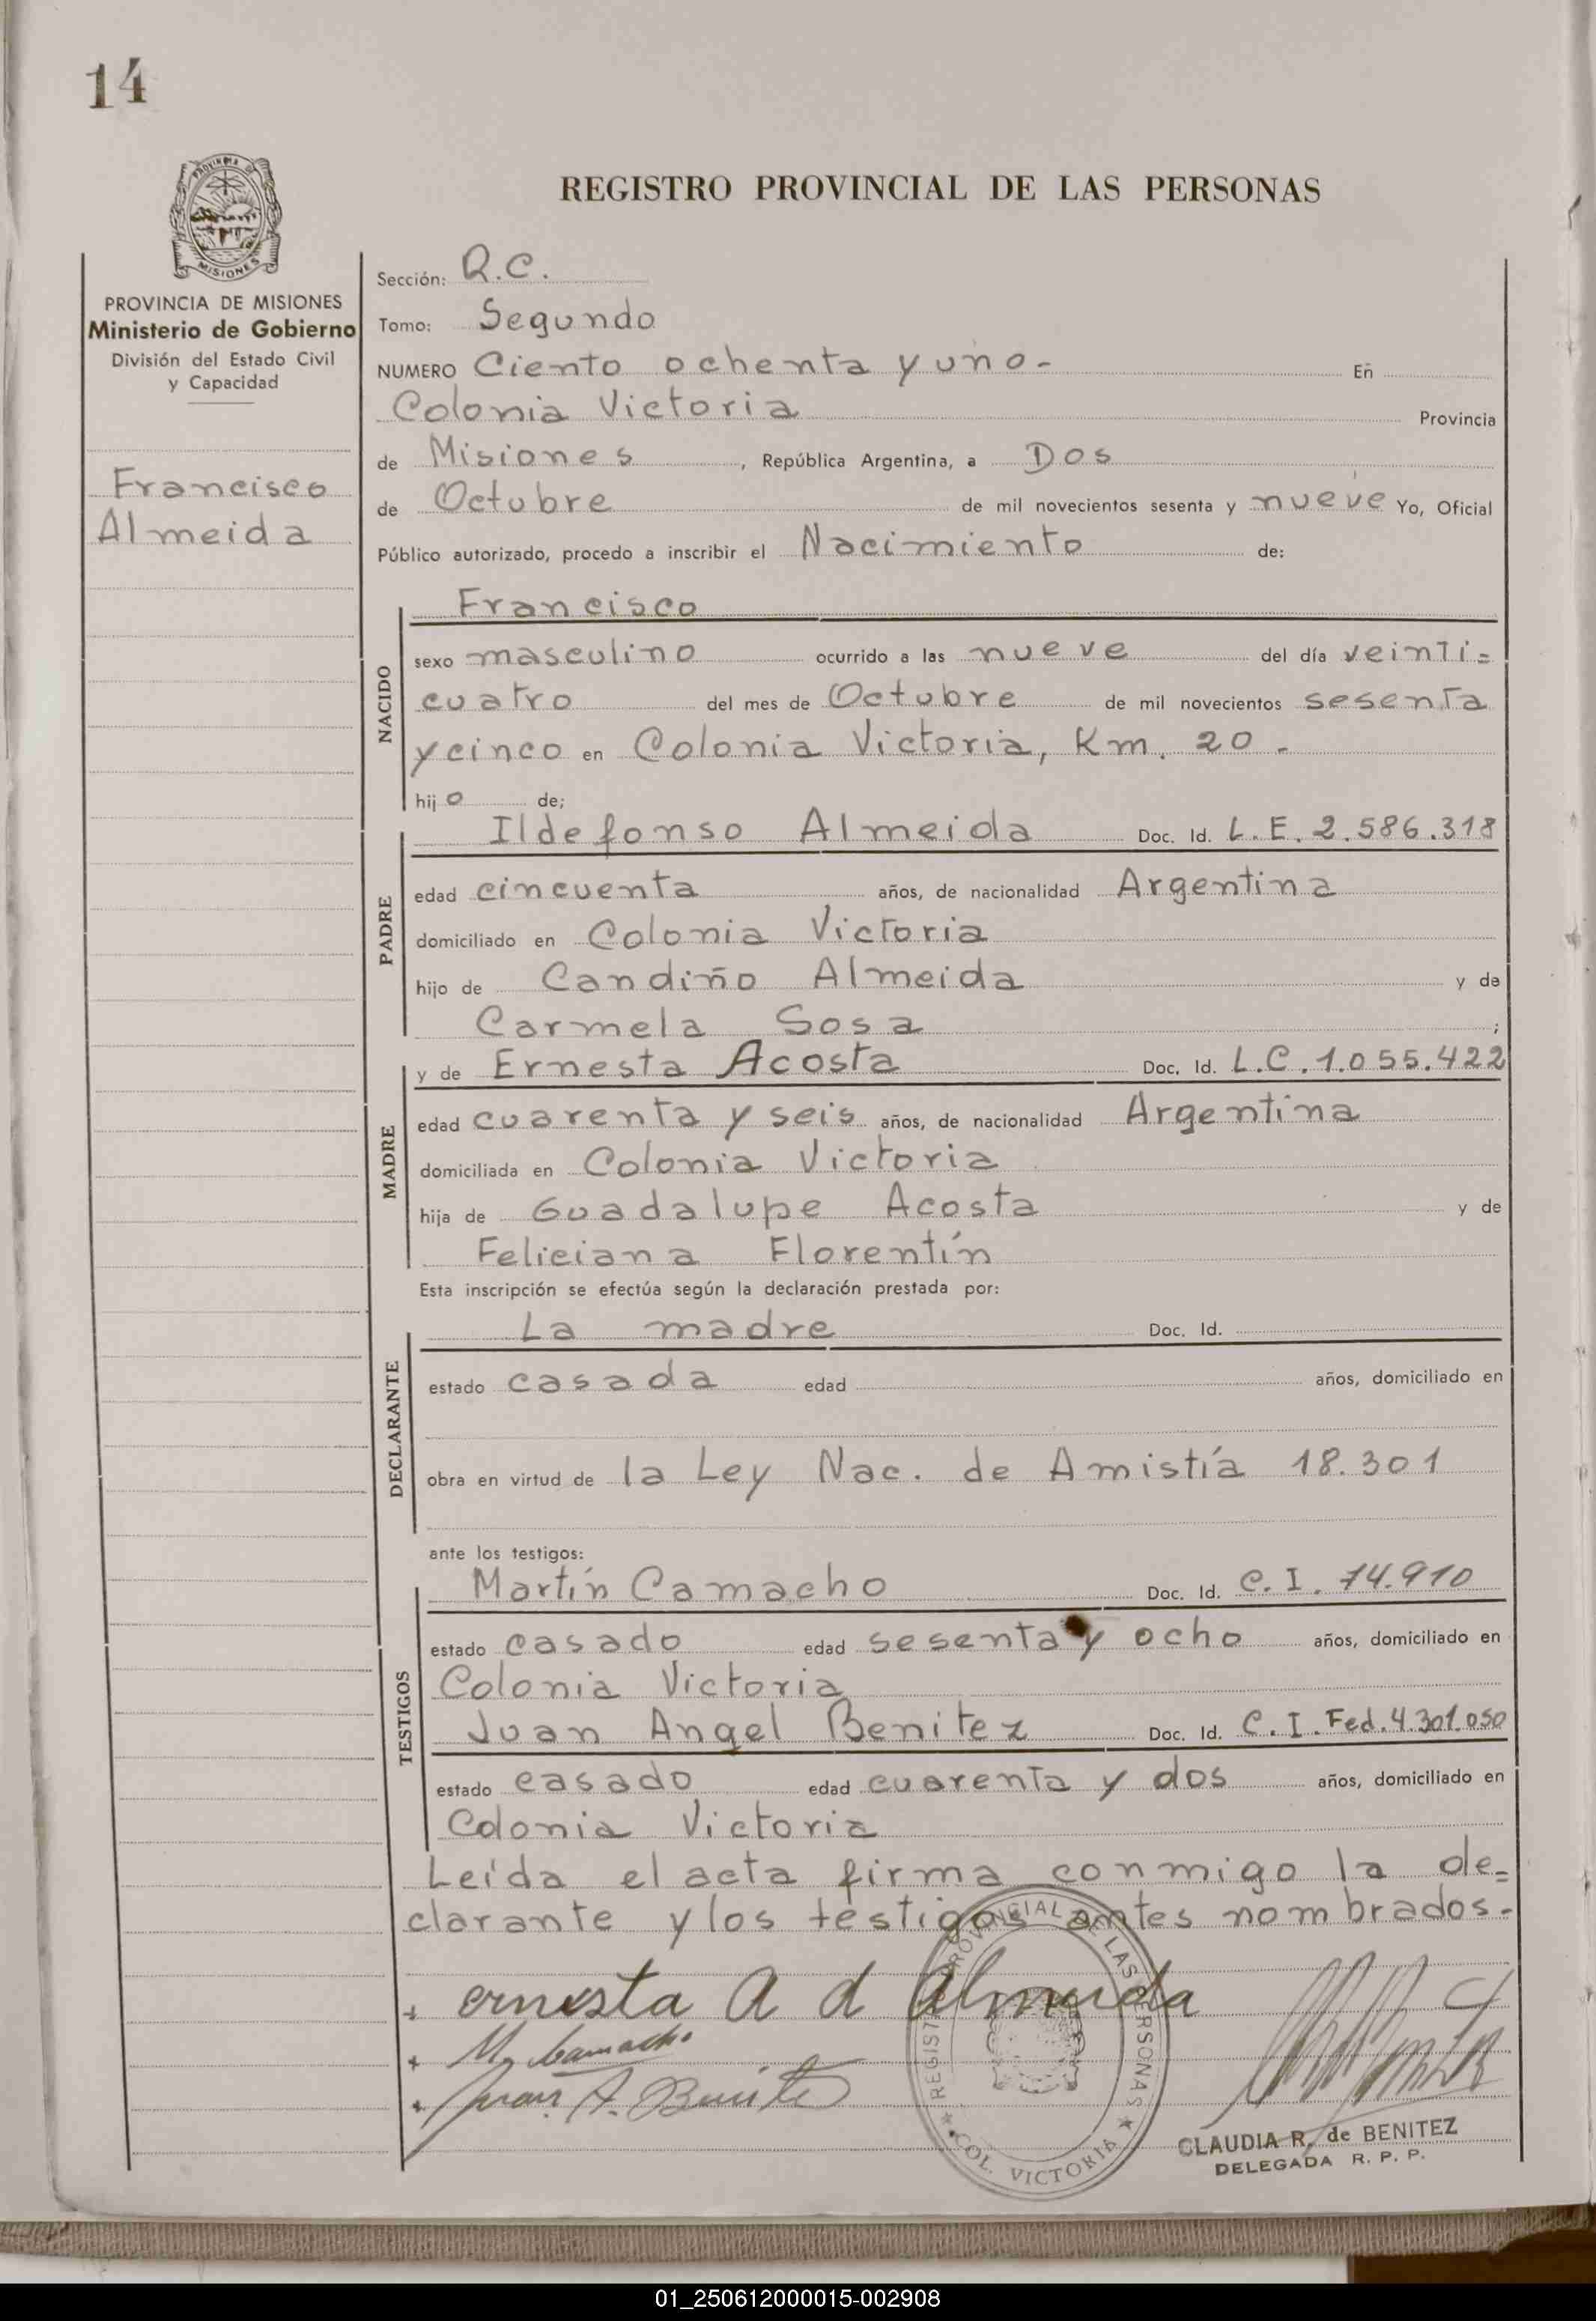 14
PROVINCIA DE MISIONES
REGISTRO PROVINCIAL DE LAS PERSONAS
PROVINCIA DE MISIONES
Ministerio de Gobierno
División del Estado Civil
y Capacidad
Francisco
Almeida
Sección: R.C.
Tomo: Segundo
NUMERO Ciento ochenta y uno- En
Colonia Victoria Provincia
de Misiones, República Argentina, a Dos
de Octubre de mil novecientos sesenta y nueve Yo, Oficial
Público autorizado, procedo a inscribir el Nacimiento de:
NACIDO
Francisco
sexo masculino ocurrido a las nueve del día veinti=
cuatro del mes de Octubre de mil novecientos sesenta
y cinco en Colonia Victoria, Km. 20.-
hijo de;
PADRE
Ildefonso Almeida Doc. Id. L.E. 2.586.318
edad cincuenta años, de nacionalidad Argentina
domiciliado en Colonia Victoria
hijo de Candiño Almeida y de
Carmela Sosa ;
MADRE
y de Ernesta Acosta Doc. Id. L.C. 1.055.422
edad cuarenta y seis años, de nacionalidad Argentina
domiciliada en Colonia Victoria
hija de Guadalupe Acosta y de
Feliciana Florentín
Esta inscripción se efectúa según la declaración prestada por:
DECLARANTE
La madre Doc. Id.
estado casada edad años, domiciliado en
obra en virtud de la Ley Nac. de Amistía 18.301
ante los testigos:
TESTIGOS
Martín Camacho Doc. Id. C.I. 74.910
estado casado edad sesenta y ocho años, domiciliado en
Colonia Victoria
Juan Angel Benitez Doc. Id. C.I. Fed. 4.301.050
estado casado edad cuarenta y dos años, domiciliado en
Colonia Victoria
Leída el acta firma conmigo la de=
clarante y los testigos antes nombrados.-
ernesta A d Almeida
M. Camacho
Juan A. Benitez
REGISTRO PROVINCIAL DE LAS PERSONAS
COL. VICTORIA
CLAUDIA R. de BENITEZ
DELEGADA R. P. P.
01_250612000015-002908